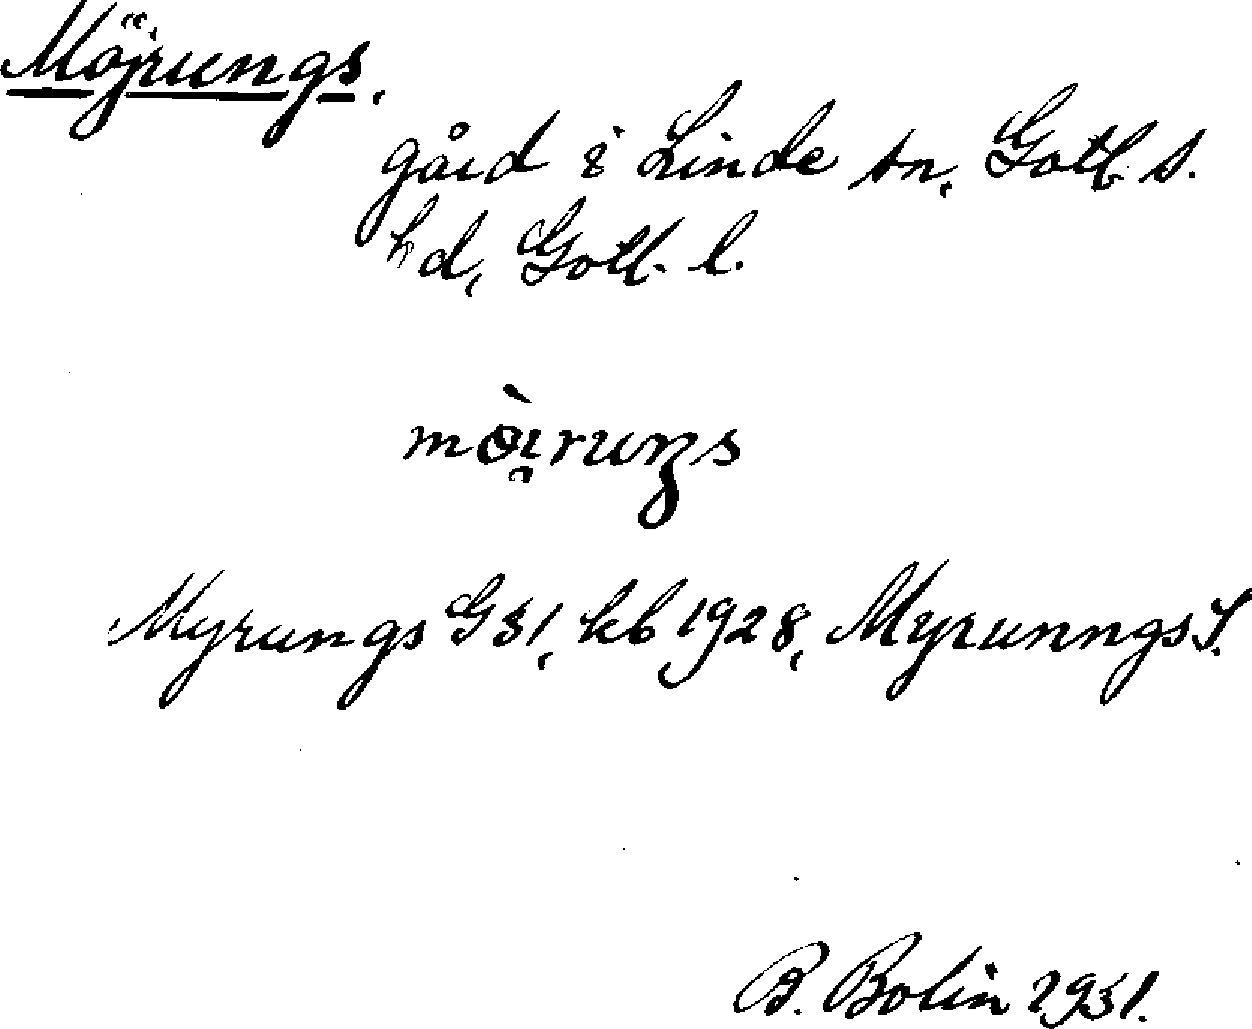 Möjrungs.
gård i Linde sn, Gotl. s.
hd, Gotl. l.
mòi̯ruŋs
Myrungs G 31, kb 1928, Myrunngs J.
B. Bolin 1931.